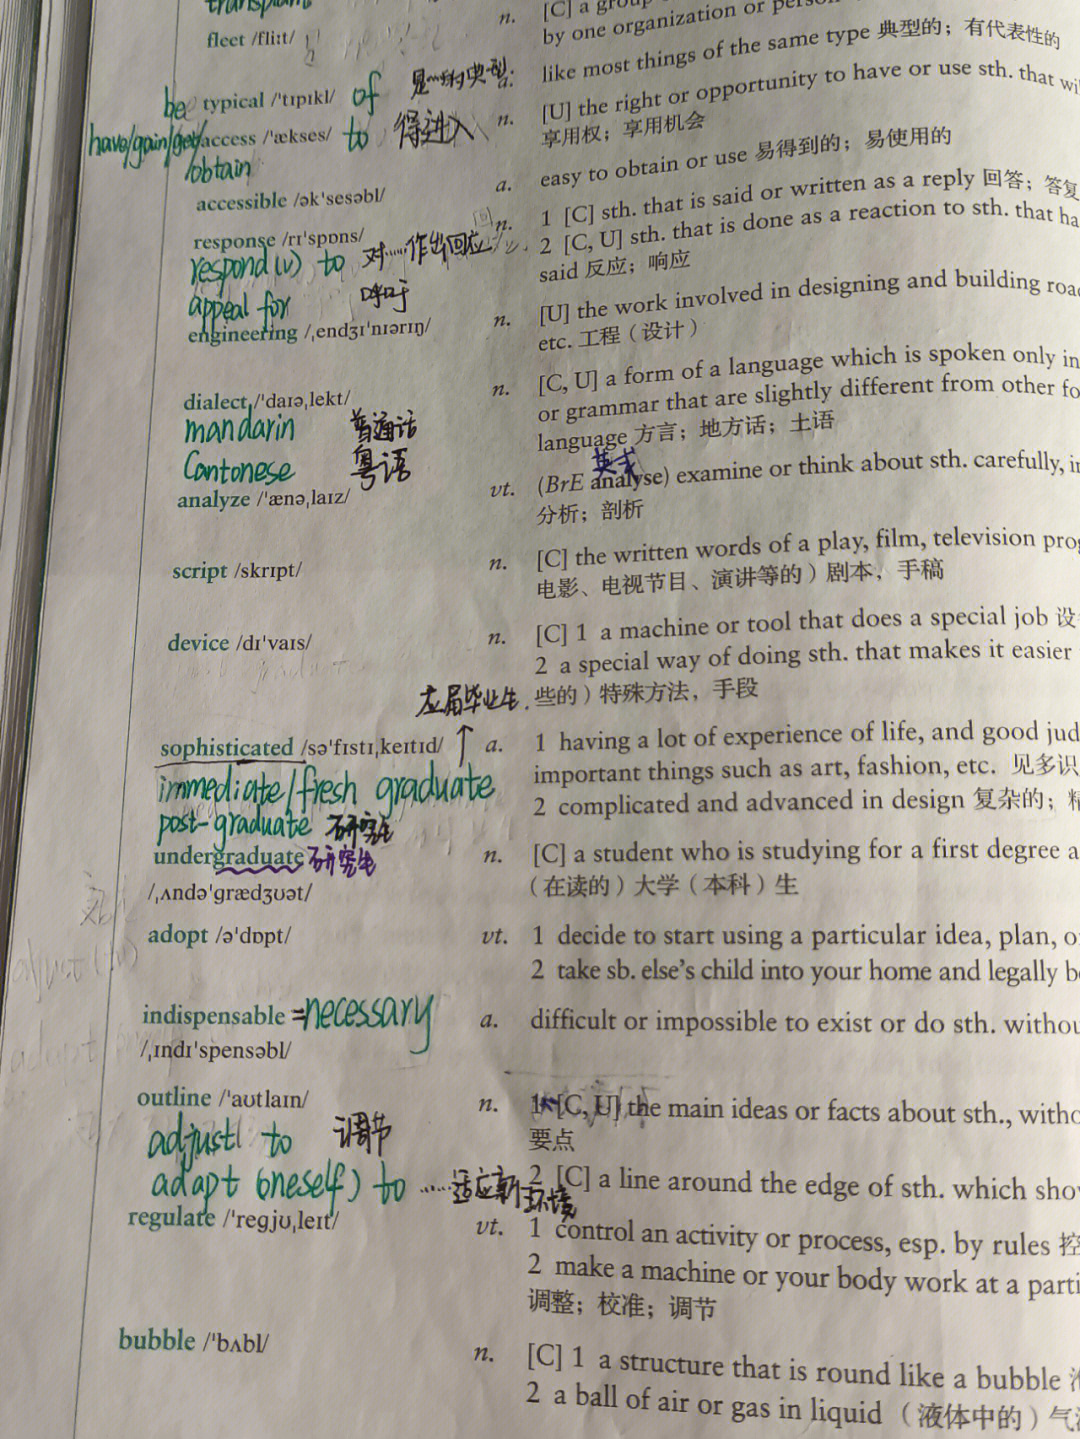 transplant
n. [C] a group
by one organization or person
fleet /fliːt/
be typical /ˈtɪpɪkl/ of 是……的典型
a. like most things of the same type 典型的；有代表性的
have/gain/get/access /ˈækses/ to 得进入
/obtain
n. [U] the right or opportunity to have or use sth. that wi
享用权；享用机会
accessible /əkˈsesəbl/ a. easy to obtain or use 易得到的；易使用的
response /rɪˈspɒns/ n. 1 [C] sth. that is said or written as a reply 回答；答复
respond (v) to 对……作出回应
2 [C, U] sth. that is done as a reaction to sth. that ha
said 反应；响应
appeal for 呼吁
engineering /ˌendʒɪˈnɪərɪŋ/ n. [U] the work involved in designing and building roa
etc. 工程（设计）
dialect /ˈdaɪəˌlekt/ n. [C, U] a form of a language which is spoken only in
or grammar that are slightly different from other fo
language 方言；地方话；土语
mandarin 普通话
Cantonese 粤语
英式
analyze /ˈænəˌlaɪz/ vt. (BrE analyse) examine or think about sth. carefully, in
分析；剖析
script /skrɪpt/ n. [C] the written words of a play, film, television prog
电影、电视节目、演讲等的）剧本，手稿
device /dɪˈvaɪs/ n. [C] 1 a machine or tool that does a special job 设
2 a special way of doing sth. that makes it easier
些的）特殊方法，手段
应届毕业生
sophisticated /səˈfɪstɪˌkeɪtɪd/ ↑ a. 1 having a lot of experience of life, and good jud
important things such as art, fashion, etc. 见多识
2 complicated and advanced in design 复杂的；精
immediate/fresh graduate
post-graduate 研究生
undergraduate 研究生 n. [C] a student who is studying for a first degree a
/ˌʌndəˈɡrædʒuət/ （在读的）大学（本科）生
adopt /əˈdɒpt/ vt. 1 decide to start using a particular idea, plan, o
2 take sb. else's child into your home and legally b
indispensable =necessary a. difficult or impossible to exist or do sth. withou
/ˌɪndɪˈspensəbl/
outline /ˈaʊtlaɪn/ n. 1 [C, U] the main ideas or facts about sth., witho
要点
adjust to 调节
2 [C] a line around the edge of sth. which sho
adapt (oneself) to ……适应新环境
regulate /ˈreɡjʊˌleɪt/ vt. 1 control an activity or process, esp. by rules 控
2 make a machine or your body work at a parti
调整；校准；调节
bubble /ˈbʌbl/ n. [C] 1 a structure that is round like a bubble
2 a ball of air or gas in liquid （液体中的）气